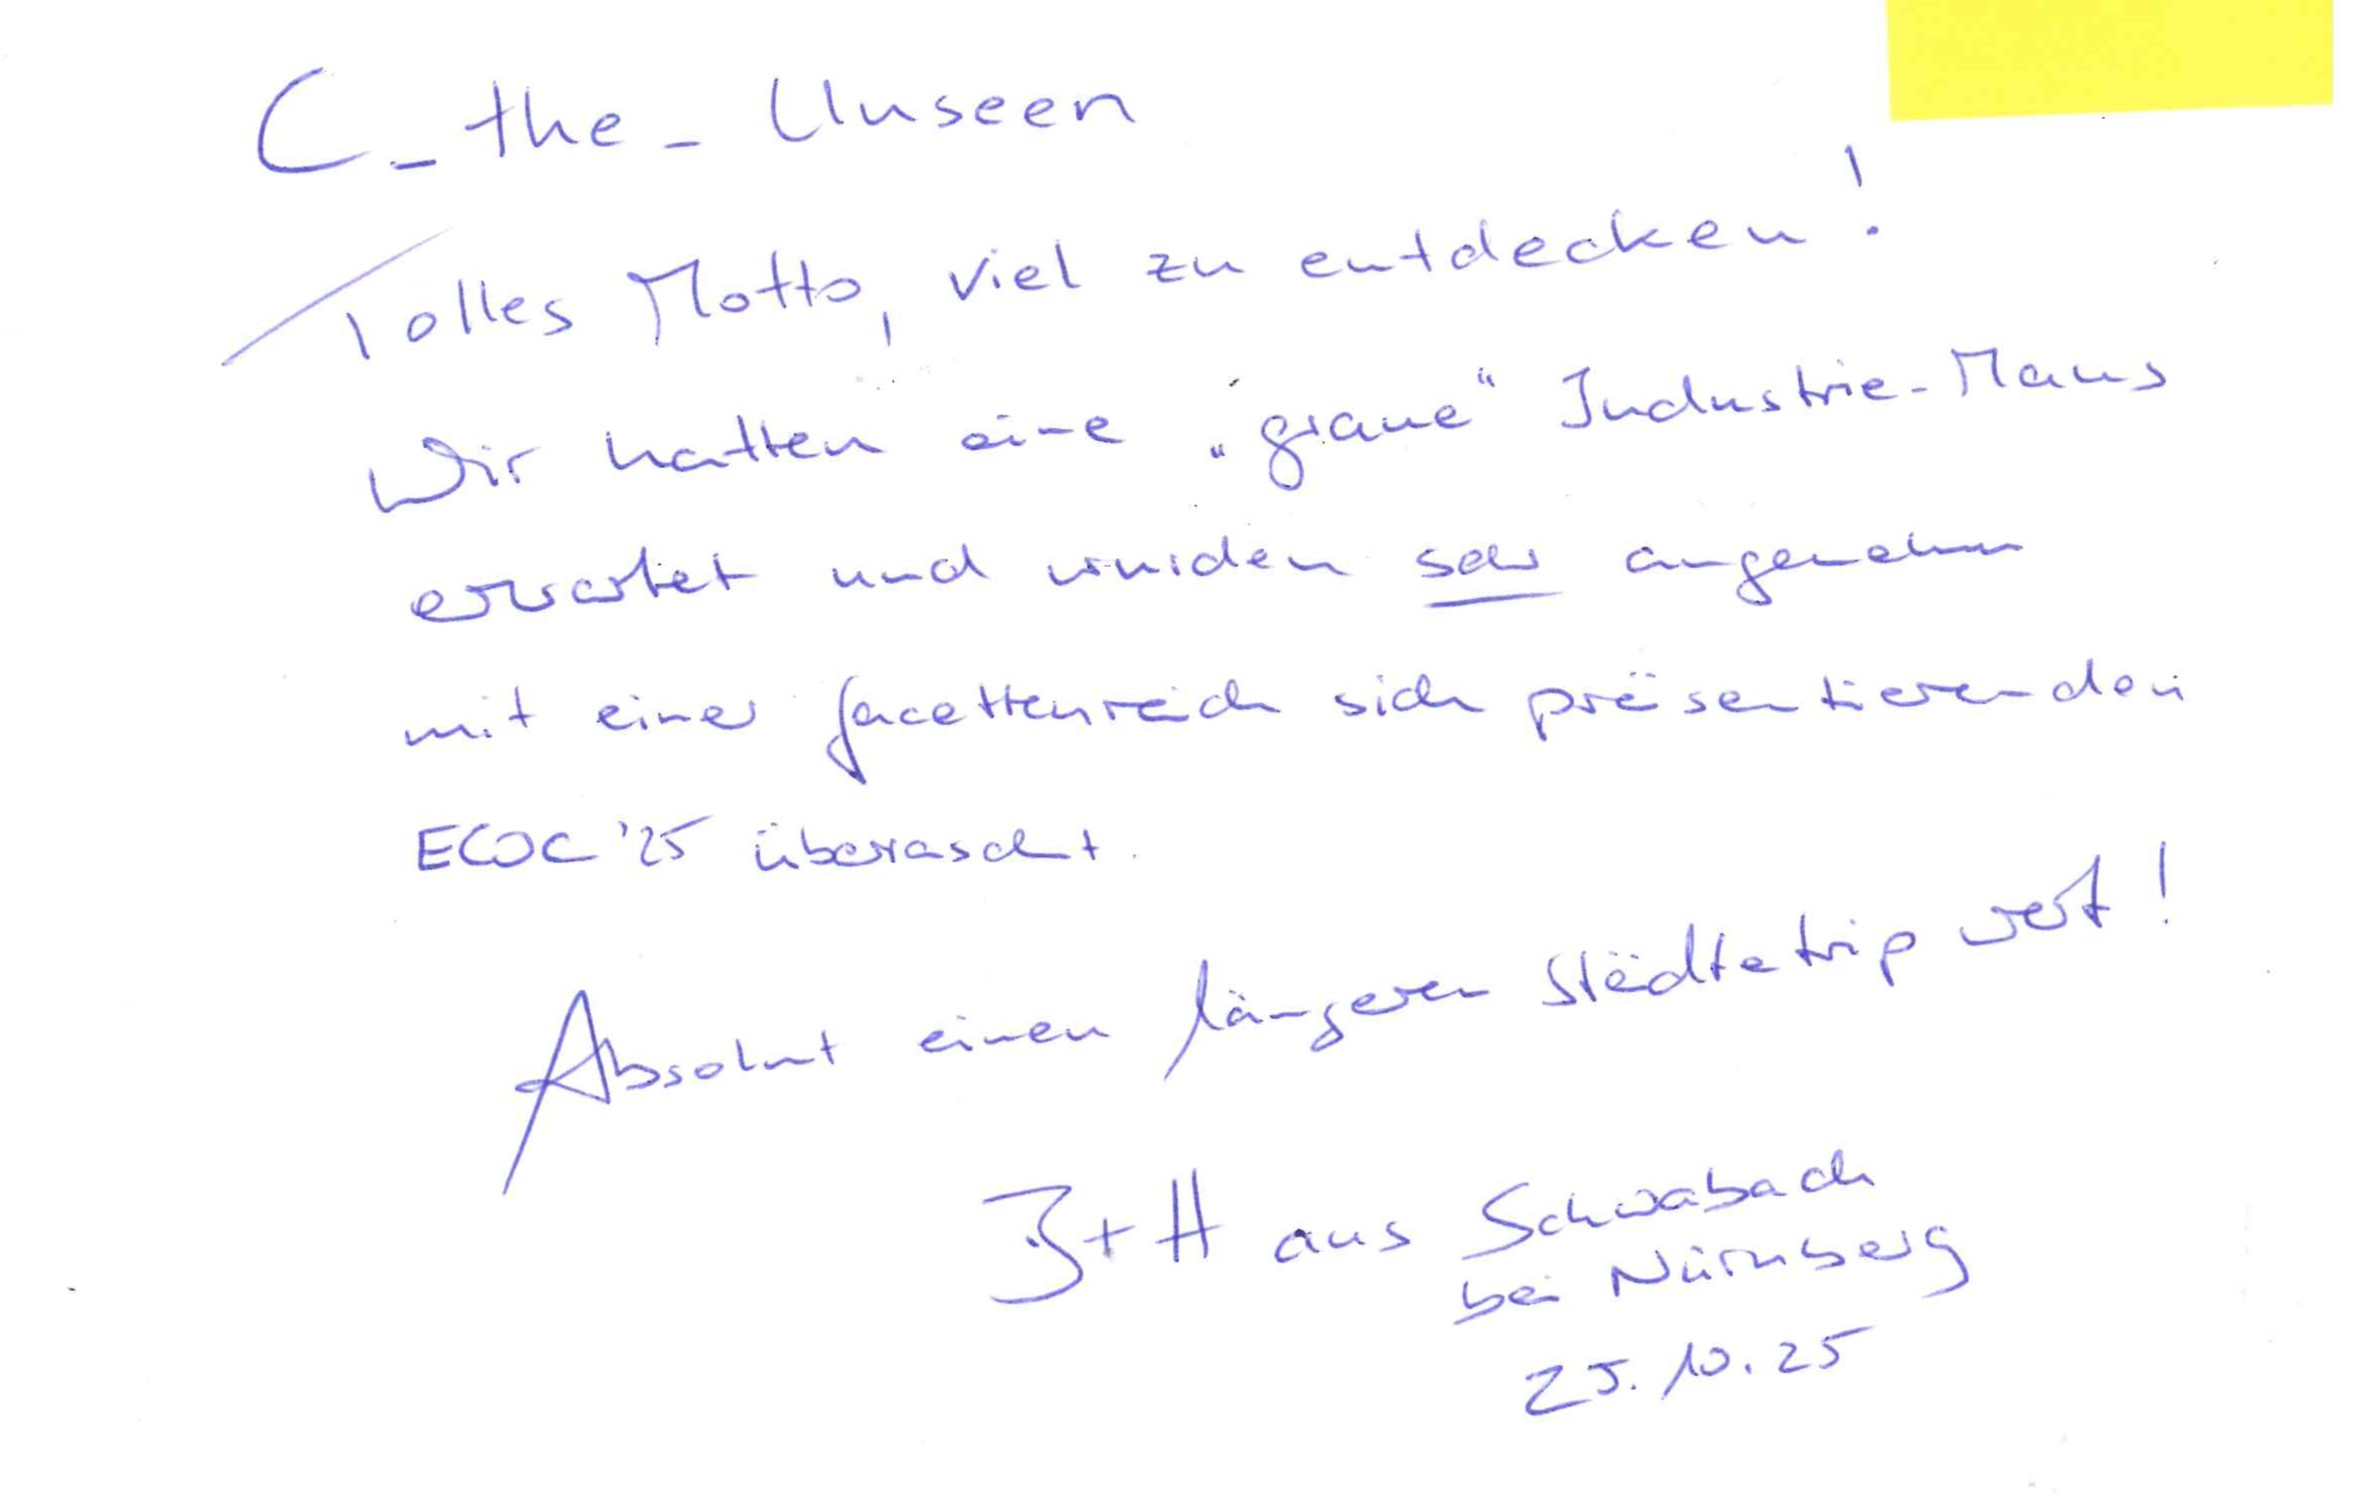 C_the_Unseen
Tolles Motto, viel zu entdecken!
Wir hatten eine „graue“ Industrie-Maus
erwartet und wurden sehr angenehm
mit einer facettenreich sich präsentierenden
ECOC '25 überrascht.
Absolut einen längeren Städtetrip wert!
B+H aus Schwabach
bei Nürnberg
25.10.25